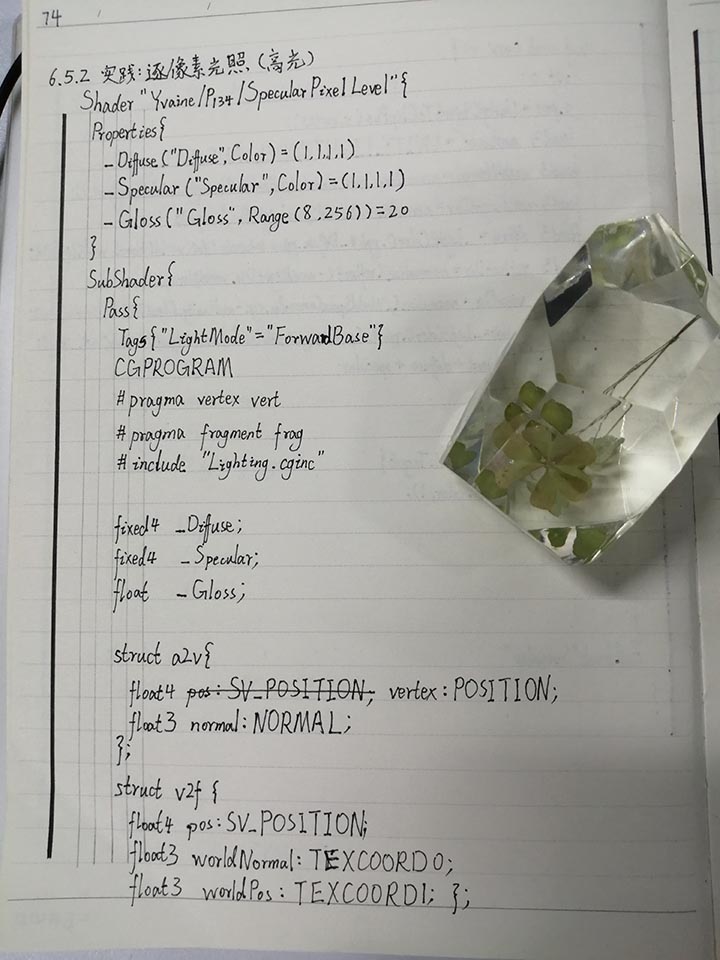 74
6.5.2 实践:逐像素光照(高光)
Shader "Yvaine/P134/Specular Pixel Level"{
Properties{
_Diffuse("Diffuse",Color)=(1,1,1,1)
_Specular("Specular",Color)=(1,1,1,1)
_Gloss("Gloss",Range(8,256))=20
}
SubShader{
Pass{
Tags{"LightMode"="ForwardBase"}
CGPROGRAM
#pragma vertex vert
#pragma fragment frag
#include "Lighting.cginc"
fixed4 _Diffuse;
fixed4 _Specular;
float _Gloss;
struct a2v{
float4 pos:SV_POSITION; vertex:POSITION;
float3 normal:NORMAL;
};
struct v2f {
float4 pos:SV_POSITION;
float3 worldNormal:TEXCOORD0;
float3 worldPos:TEXCOORD1; };